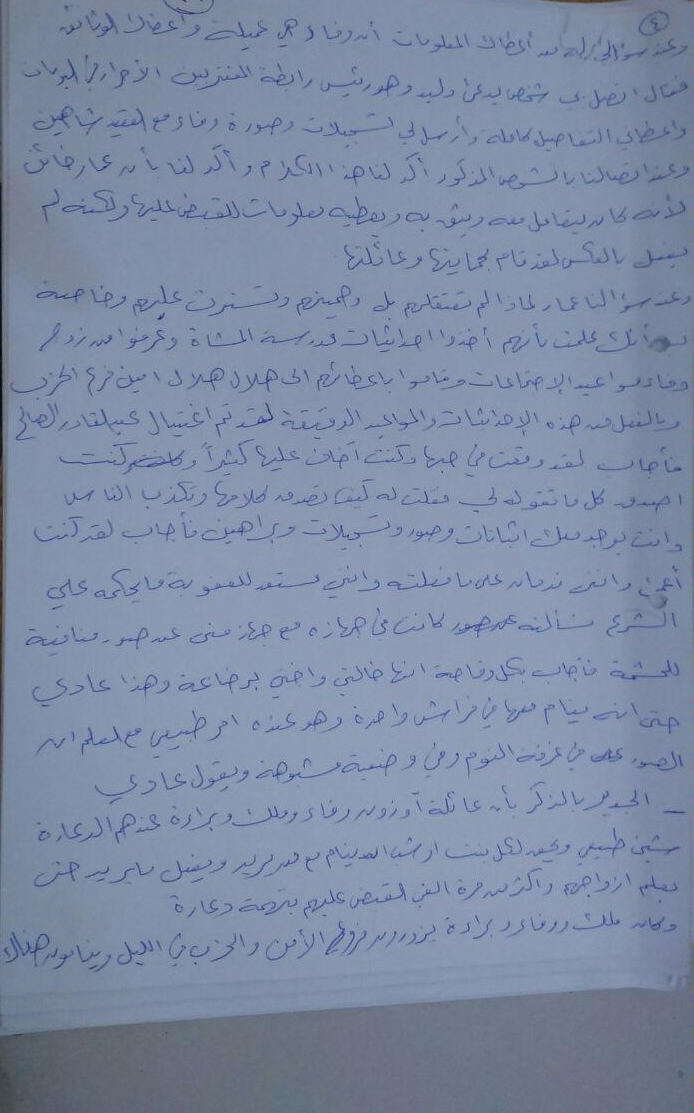 ٤
وعند سؤالي له من أعطاك المعلومات أن وفاء هي عميلة وأعطاك الوثائق
فقال اتصل بي شخص يدعى وليد وهو رئيس رابطة المغتربين الأحرار
وأعطاني التفاصيل كاملة وأرسل لي تسجيلات وصورة وفاء مع العقيد شاهين
وعند اتصالنا بالشخص المذكور أكد لنا هذا الكلام وأكد لنا بأن عمار خائن
لأنه كان يتعامل معه ويثق به ويعطيه معلومات للقبض عليها ولكنه لم
يفعل بالعكس لقد قام بحمايتها وعائلتها
وعند سؤالنا عمار لماذا لم تعتقلهم بل وحميتهم وتسترت عليهم وخاصة
أنك علمت بأنهم أخذوا احداثيات مدرسة المشاة وعرفوا من زوج
وفاء مواعيد الاجتماعات وقاموا باعطائهم الى هلال هلال امين فرع الحزب
وبالفعل من هذه الإحداثيات والمواعيد الدقيقة لقد تم اغتيال عبد القادر الصالح
فأجاب لقد وقعت في حبها وكنت أخاف عليها كثيراً وكنت
اصدق كل ما تقوله لي فقلت له كيف تصدق كلامها وتكذب الناس
وانت يوجد معك اثباتات وصور وتسجيلات وبراهين فأجاب لقد كنت
أعمى وانني ندمان على ما فعلته وانني مستعد للعقوبة ما يحكمه علي
الشرع فسألته عن صور كانت في جهازه مع جهاز منى عن صور منافية
للحشمة فأجاب بكل وقاحة انها خالتي واختي برضاعة وهذا عادي
حتى انه ينام معها في فراش واحدة وهو عنده امر طبيعي مع العلم ان
الصور في غرفة النوم وفي وضعية مشبوهة ويقول عادي
_ الجدير بالذكر بأن عائلة أوزون وفاء وملك وبراءة عندهم الدعارة
شيئ طبيعي ويحق لكل بنت او شب ينام مع من يريد ويفعل ما يريد حتى
بعلم ازواجهم واكثر من مرة القي القبض عليهم بتهمة دعارة
وكان ملك ووفاء وبراءة يزورون فروع الأمن والحزب في الليل وينامون هناك